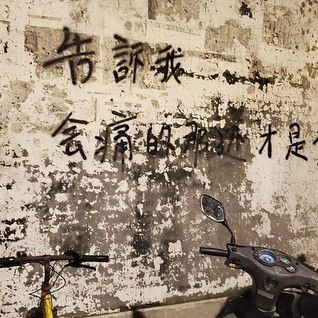 告訴我
会痛的那边才是